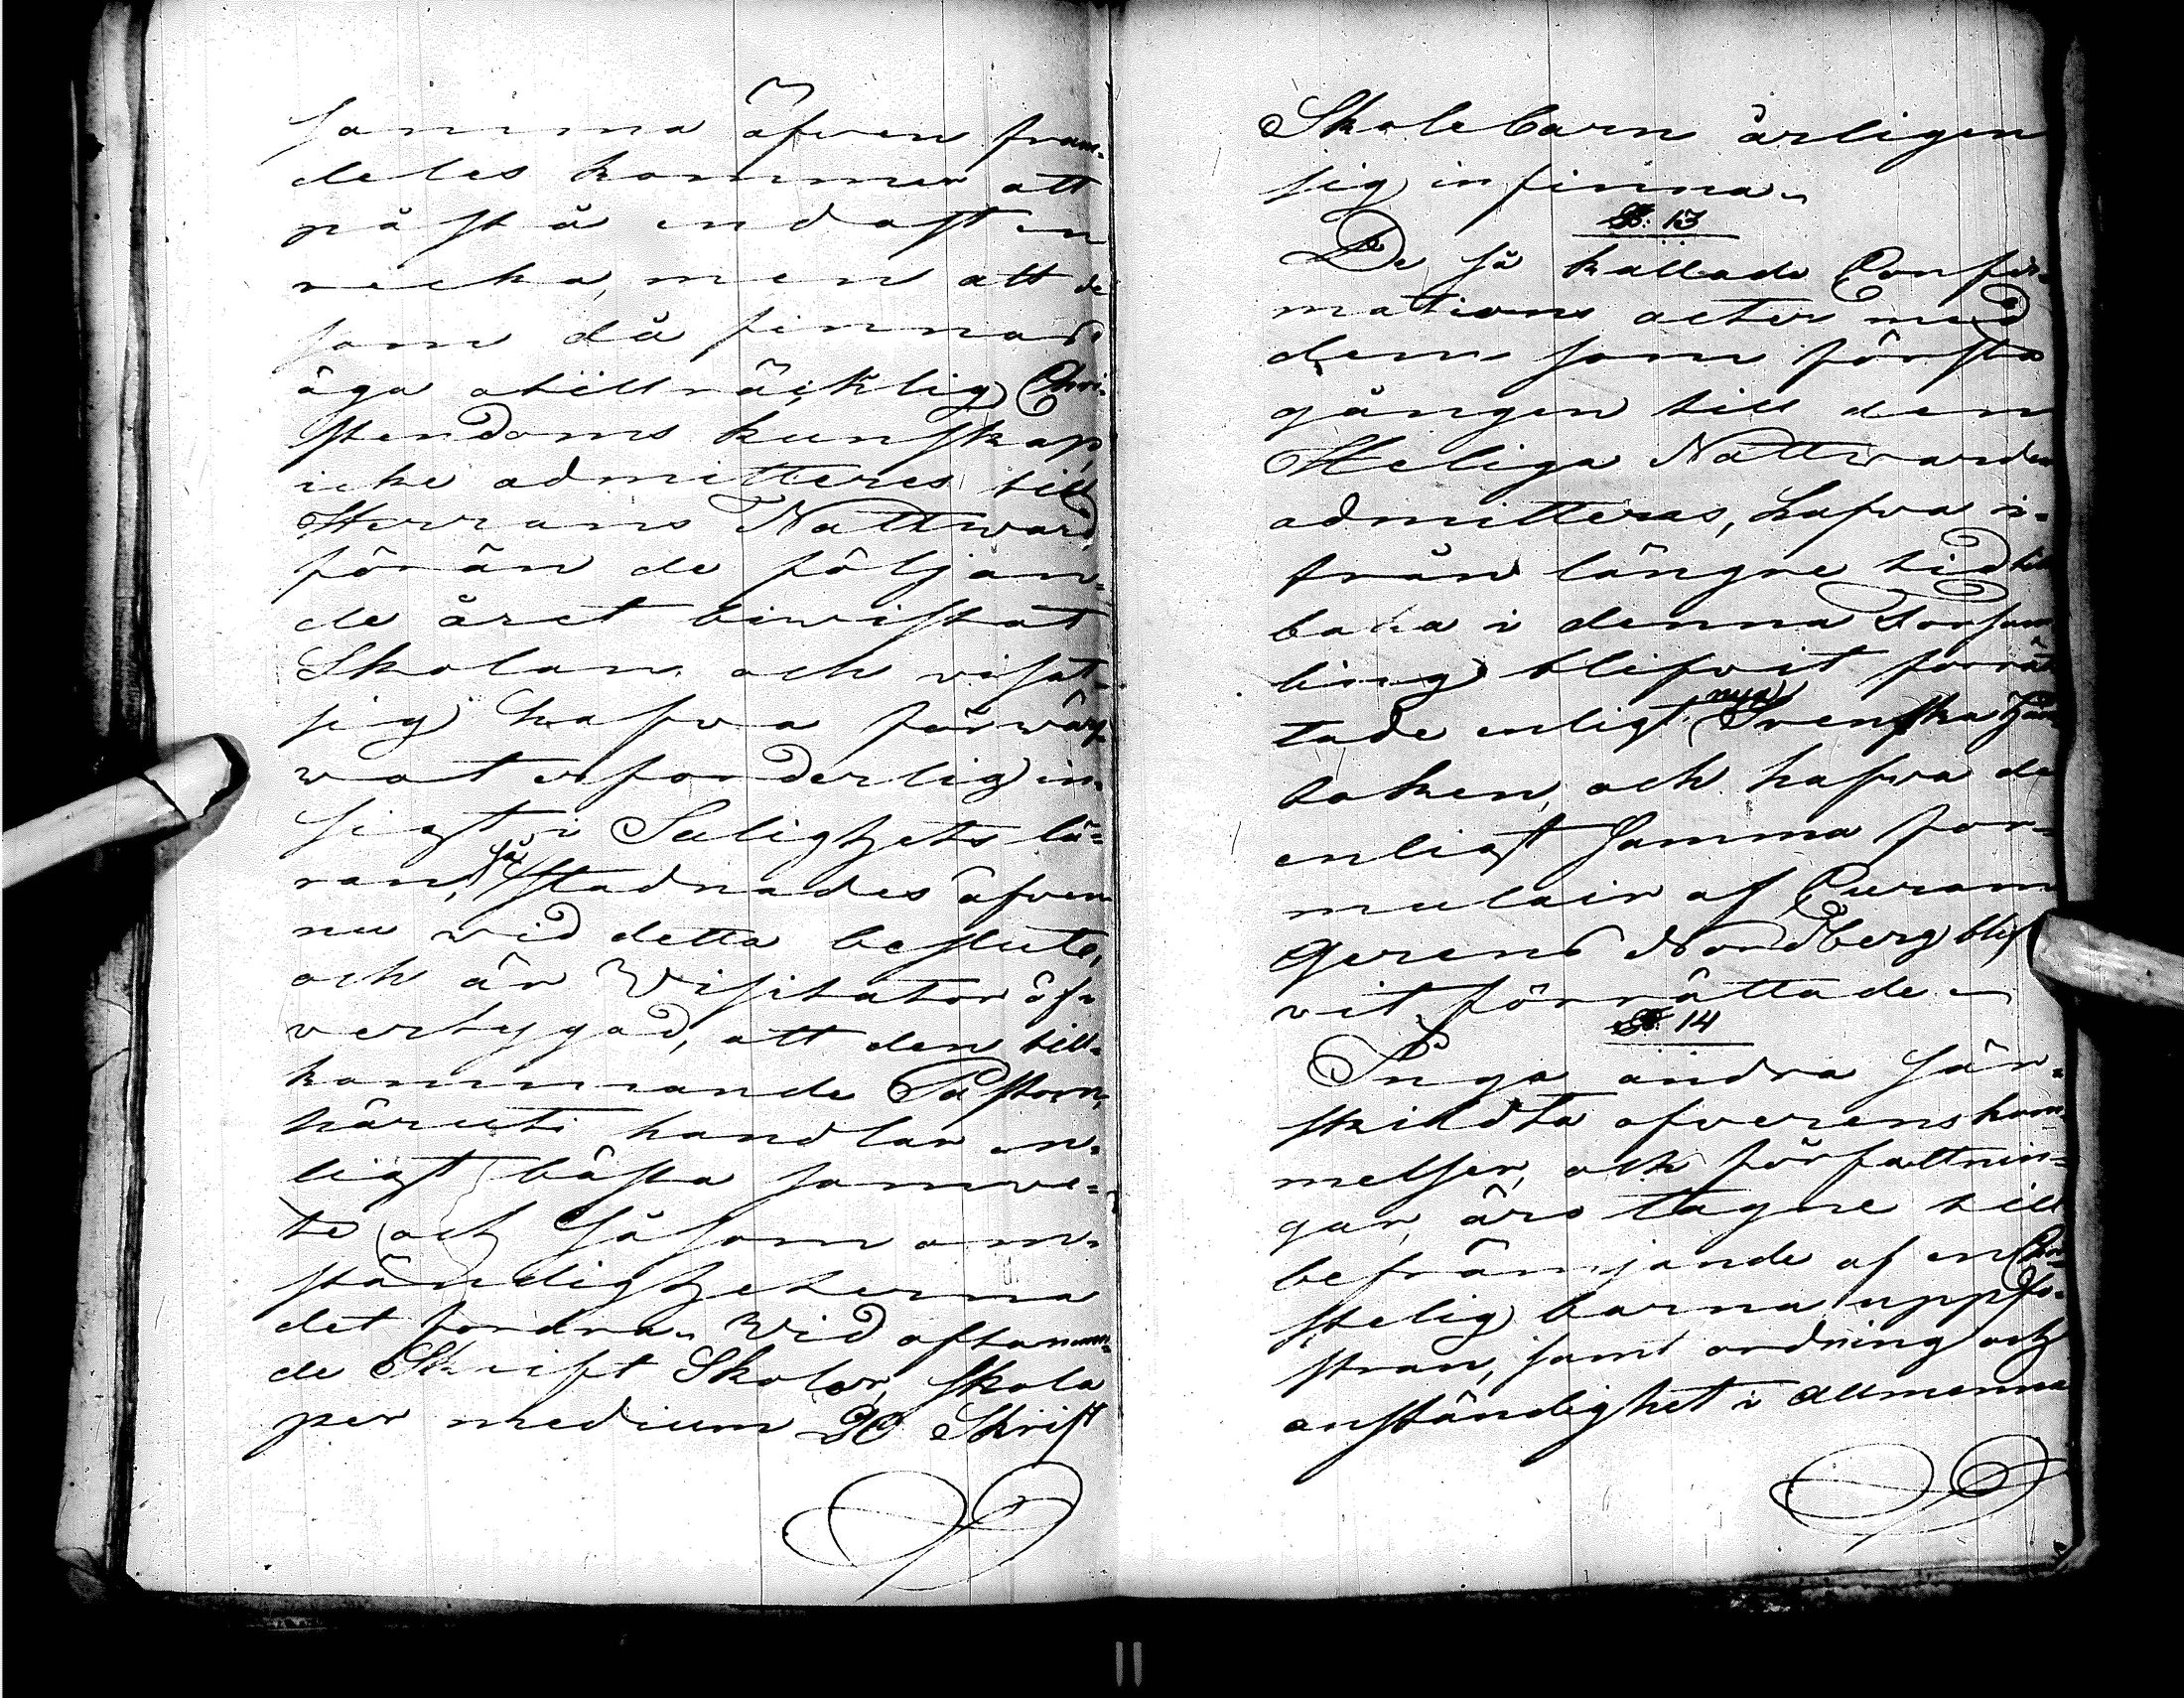 samma äfven fram-
deles kommer att
påstå endast en
vecka, men att de
som då finnas
äga otillräcklig Chri-
stendoms kunskap,
icke admitteres till
Herrans Nattward,
förän de följan-
de året biwistat
Skolan och visat
sig hafva förwärf-
wat erforderlig in-
sigt i Salighets lä-
ran, så stadnades äfven
nu wid detta beslute,
och är Visitator öf-
vertygad, att den till-
kommande Pastorn,
häruti handlar en-
ligt bästa samve-
te och såsom om-
ständigheterna
det fordra. Wid oftanämn-
de Skrift Skolor, skola
per medium 30 Skrift
Skolebarn årligen
sig infinna.
§. 13
De så kallade Confir-
mations acter med
dem som första
gången till den
Heliga Nattwarden
admitteras, hafva i-
från längre tid till
baka i denna Försam
ling blifvit förrät
tade enligt nya Svenska Hand
boken, och hafva de
enligt samma for-
mulair af Curam
gerens Nordberg blif
vit förrättade.
§. 14
Inga andra sär-
skildta öfverenskom
melser, och författnin-
gar, äro tagne till
befrämjande af en Chri-
stelig barna uppfo-
stran, samt ordning och
anständighet i allmenna